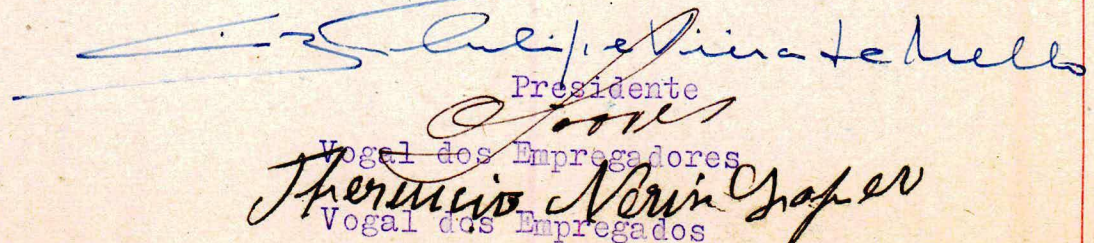 Philippe Vieira de Mello
Presidente
Lopes
Vogal dos Empregadores
Therencio Nerin
Vogal dos Empregados